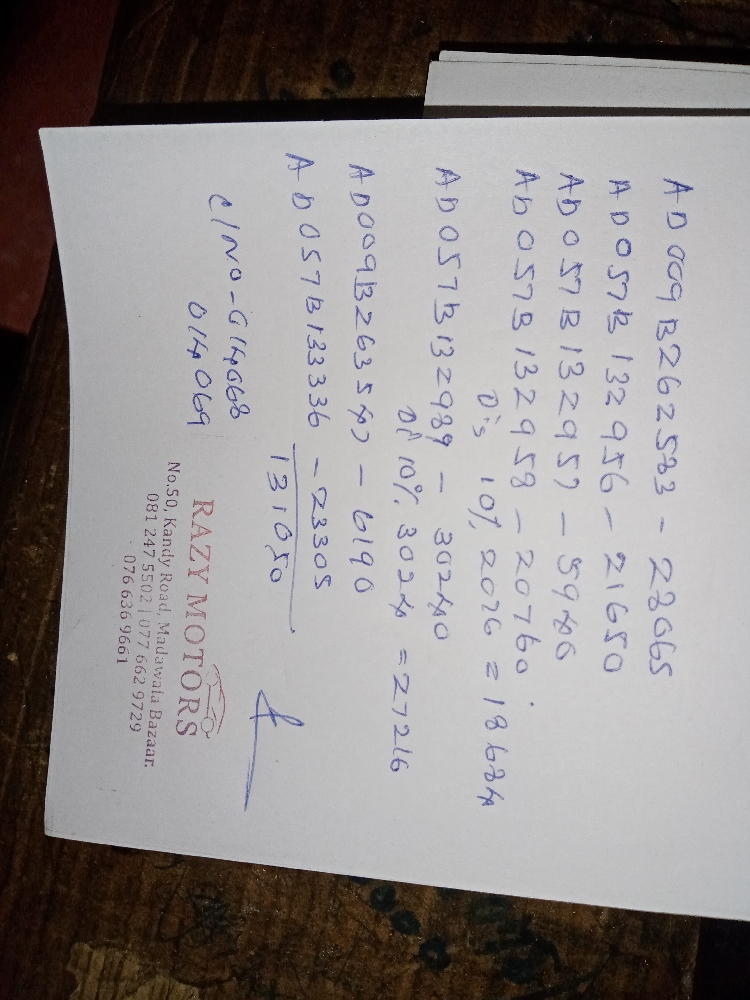 AD009B262583 - 28065
AD057B132956 - 21650
AD057B132957 - 5940
AD057B132958 - 20760
Dis 10% 2076 = 18684
AD057B132989 - 30240
Di 10% 3024 = 27216
AD009B263547 - 6190
AD057B133336 - 23305
131050
c/NO - 014068
014069
RAZY MOTORS
No.50, Kandy Road, Madawala Bazaar.
081 247 5502 | 077 662 9729
076 636 9661